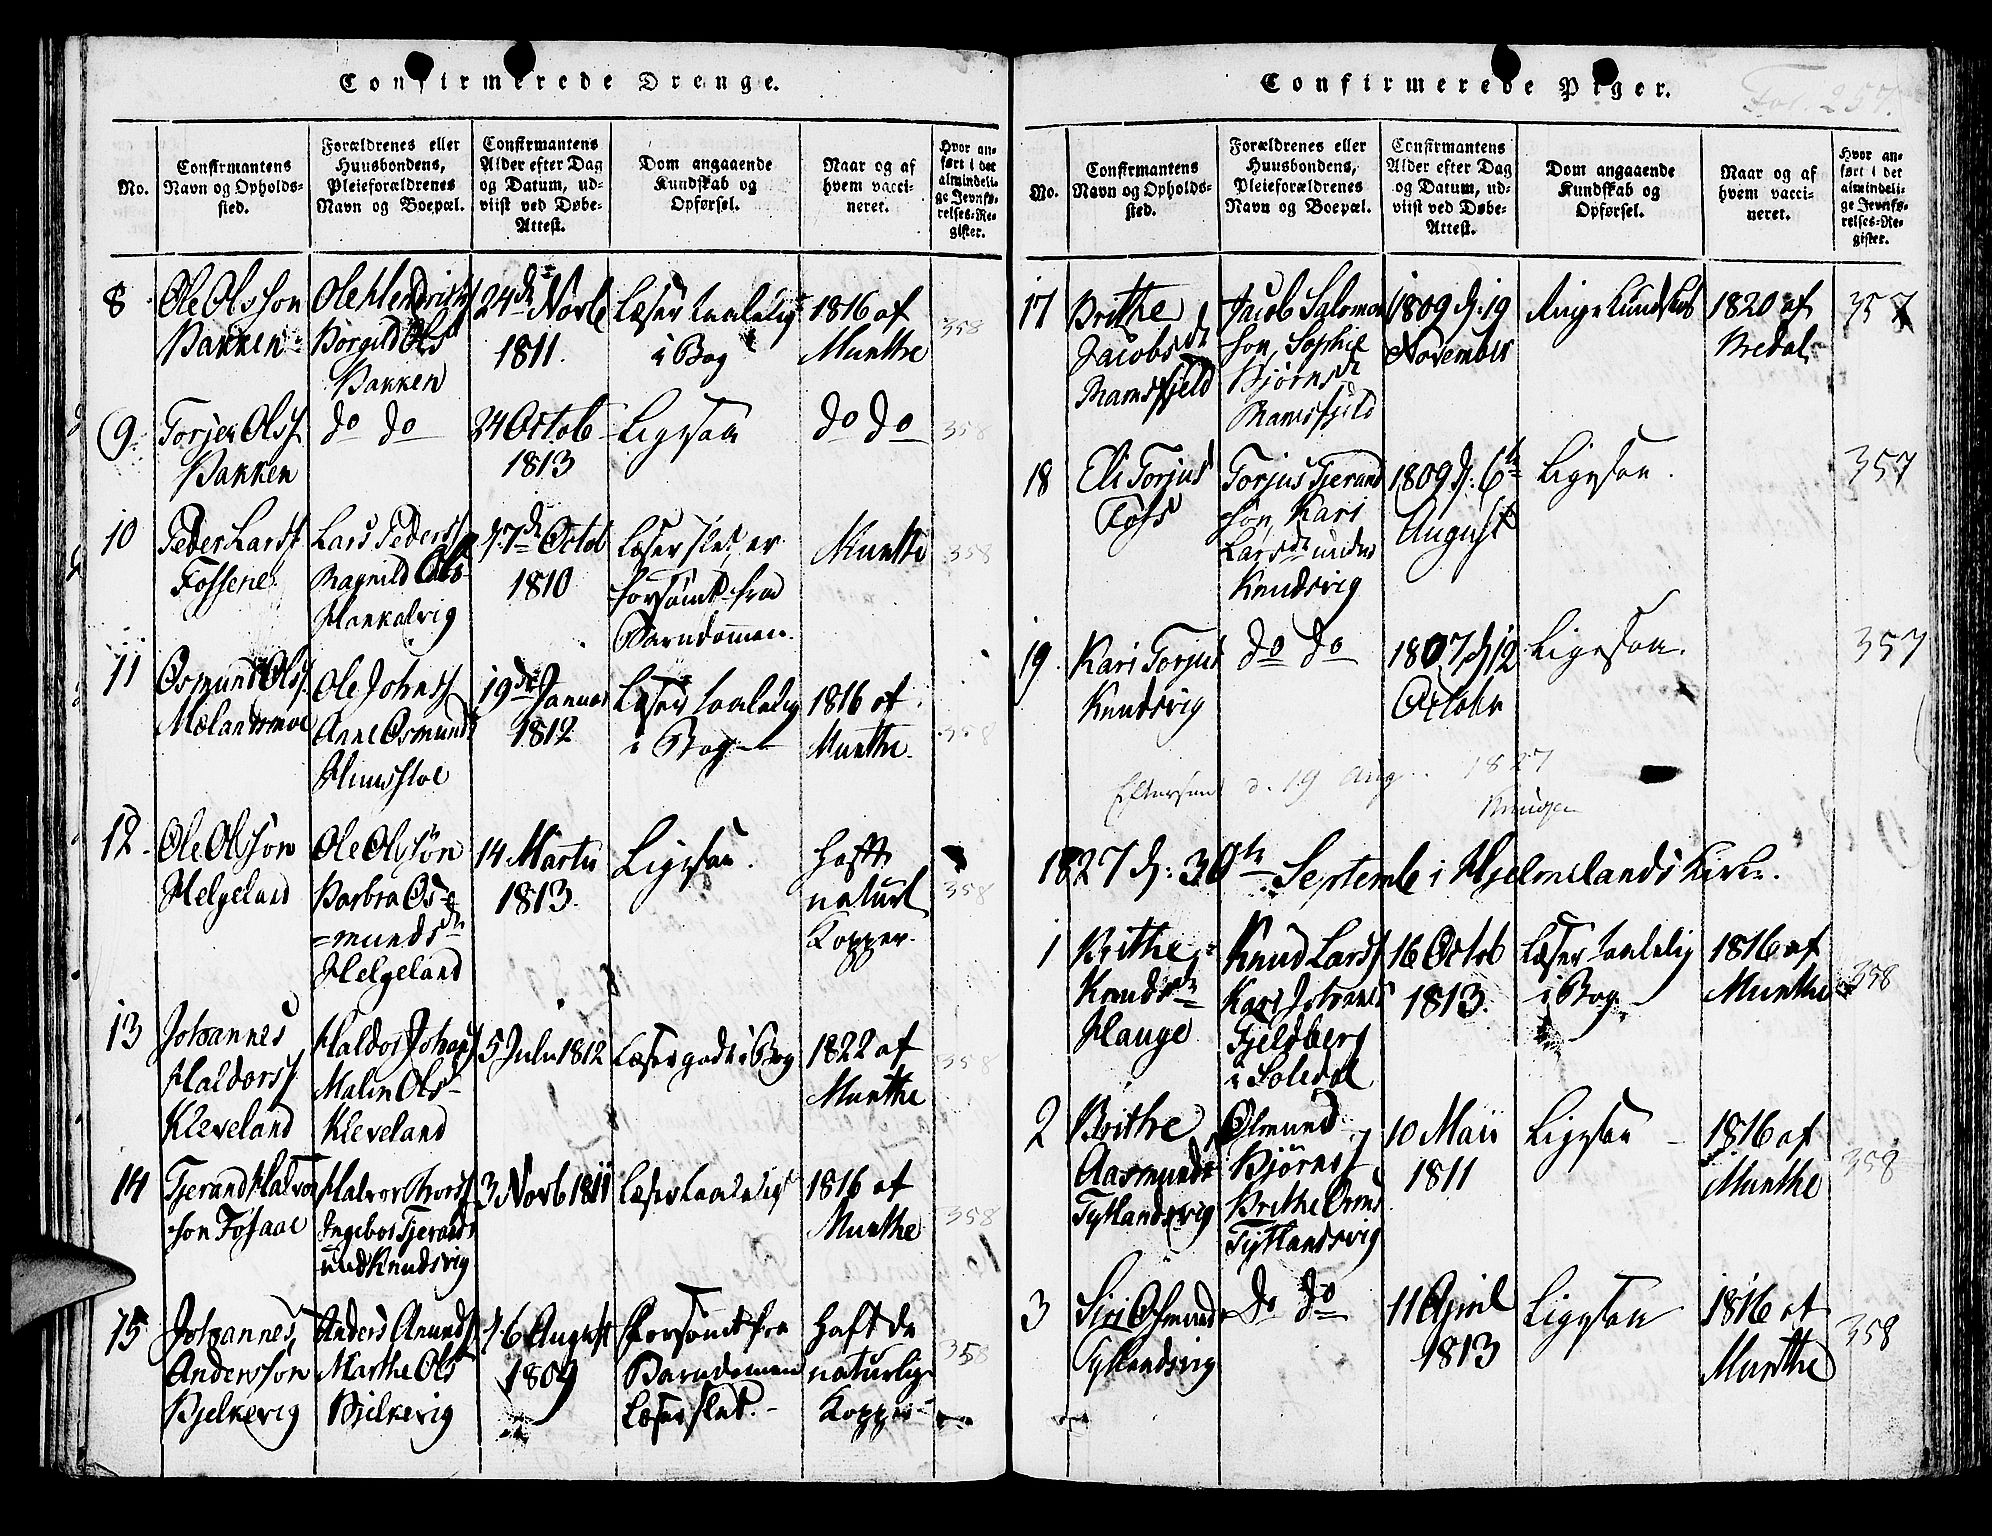 Confirmerede Drenge.
No.
Confirmantens
Navn og Opholds-
sted.
Forældrenes eller
Huusbondens,
Pleieforældrenes
Navn og Boepæl.
Confirmantens
Alder efter Dag
og Datum, ud-
viist ved Døbe-
Attest.
Dom angaaende
Kundskab og
Opførsel.
Naar og af
hvem vacci-
neret.
Hvor an-
ført i det
almindeli-
ge Jevnfø-
relses-Re-
gister.
8
Ole Olsson
Bakken
Ole Hendriks
Borgild Ols
Bakken
24de Novb
1811.
Læser taalelig
i Bog
1816 af
Munthe
358
9.
Torjer Olss
Bakken
do do
24 Octob
1813
Ligesaa
do do
358
10
Peder Larss
Fossene
Lars Pederss
Ragnild Ols
Hankalvig
d. 7de Octob
1810
Læser slet, er
forsømt fra
Barndommen.
Munthe
358
11
Osmund Olss
Mælandsmoe
Ole Johnss
Anne Osmunds
Himsstoe
19de Januar
1812
Læser taalelig
i Bog
1816 af
Munthe.
358
12.
Ole Olsson
Helgeland
Ole Olssøn
Barbra Os-
=munds
Helgeland
14 Martii
1813.
Ligesaa.
haft
naturl
Kopper.
358
13
Johannes
Haldorss
Kleveland
Haldor Johans
Malin Ols-
Kleveland
5 Julii 1812
Læser godt i Bog
1822 af
Munthe
358
14
Tjerand Halvor
son Fosaae
Halvor Thorss
Ingebor Tjerands
und Knudsvig
3 Novb 1811
Læser taalelig
1816 af
Munthe
358
15
Johannes
Andersson
Bjelkevig
Anders Anunds
Marthe Ols
Bjelkevig
16 August
1809
Forsømt fra
Barndomen
Læser slet.
haft de
naturlig
Kopper
358
Confirmerede Piger.
Fol. 257.
No.
Confirmantens
Navn og Opholds-
sted.
Forældrenes eller
Huusbondens,
Pleieforældrenes
Navn og Boepæl.
Confirmantens
Alder efter Dag
og Datum, ud-
viist ved Døbe-
Attest.
Dom angaaende
Kundskab og
Opførsel.
Naar og af
hvem vacci-
neret.
Hvor an-
ført i det
almindeli-
ge Jevnfø-
relses-Re-
gister.
17
Brithe
Jacobsdr
Ramsfjeld
Jacob Salomon
son, Sophie
Bjørnsdr
Ramsfjeld
1809 d. 19
November
Ringe Kundskab
1820 af
Bredal
357
18
Eli Torjus
Foss
Torjus Tjerand
søn, Kari
Larsdr under
Knudsvig
1809 d. 6te
August
Ligesaa.
357
19.
Kari Torjus
Knudsvig
do do
1807 d 12
October
Ligesaa.
357
Efterseet d. 19 Aug. 1827
1827 d. 30te Septemb i Hjelmelands Kirke.
1
Brithe
Knudsdr
Hauge
Knud Larss
Kari Johannes
Fjeldberg
i Soledal
16 Octob
1813.
Læser taalelig
i Bog
1816 af
Munthe
358
2
Brithe
Aasmunds
Tytlandsvig
Osmund
Bjørnss
Brithe Orms
Tytlandsvig
10 Maii
1811
Ligesaa
1816 af
Munthe
358
3
Siri Osmunds
Tytlandsvig
do do
11 April
1813
Ligesaa
1816 af
Munthe
358